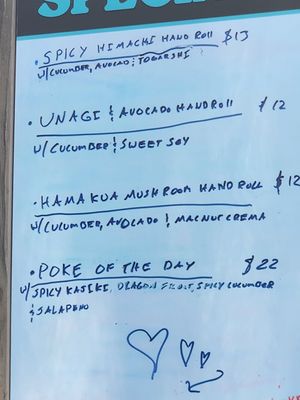 SPECIAL
• SPICY HIMACHI HAND ROLL $13
W/CUCUMBER, AVOCADO & TOGARSHI
• UNAGI & AVOCADO HAND ROLL $12
W/CUCUMBER & SWEET SOY
• HAMAKUA MUSHROOM HAND ROLL $12
W/CUCUMBER, AVOCADO & MACNUT CREMA
• POKE OF THE DAY $22
W/SPICY KAJIKI, DRAGON FRUIT, SPICY CUCUMBER
& JALAPENO